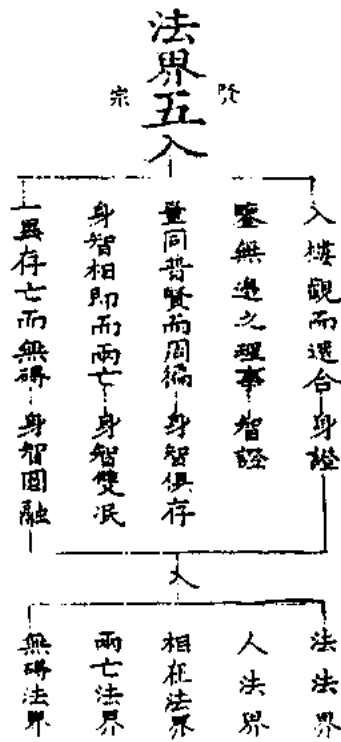 法界五入
賢宗
入樓觀而還合 身證
鑒無邊之理事 智證
量同普賢而周徧 身智俱存
身智相即而兩亡 身智雙泯
一異存亡而無礙 身智圓融
入
法法界
人法界
相在法界
兩亡法界
無礙法界